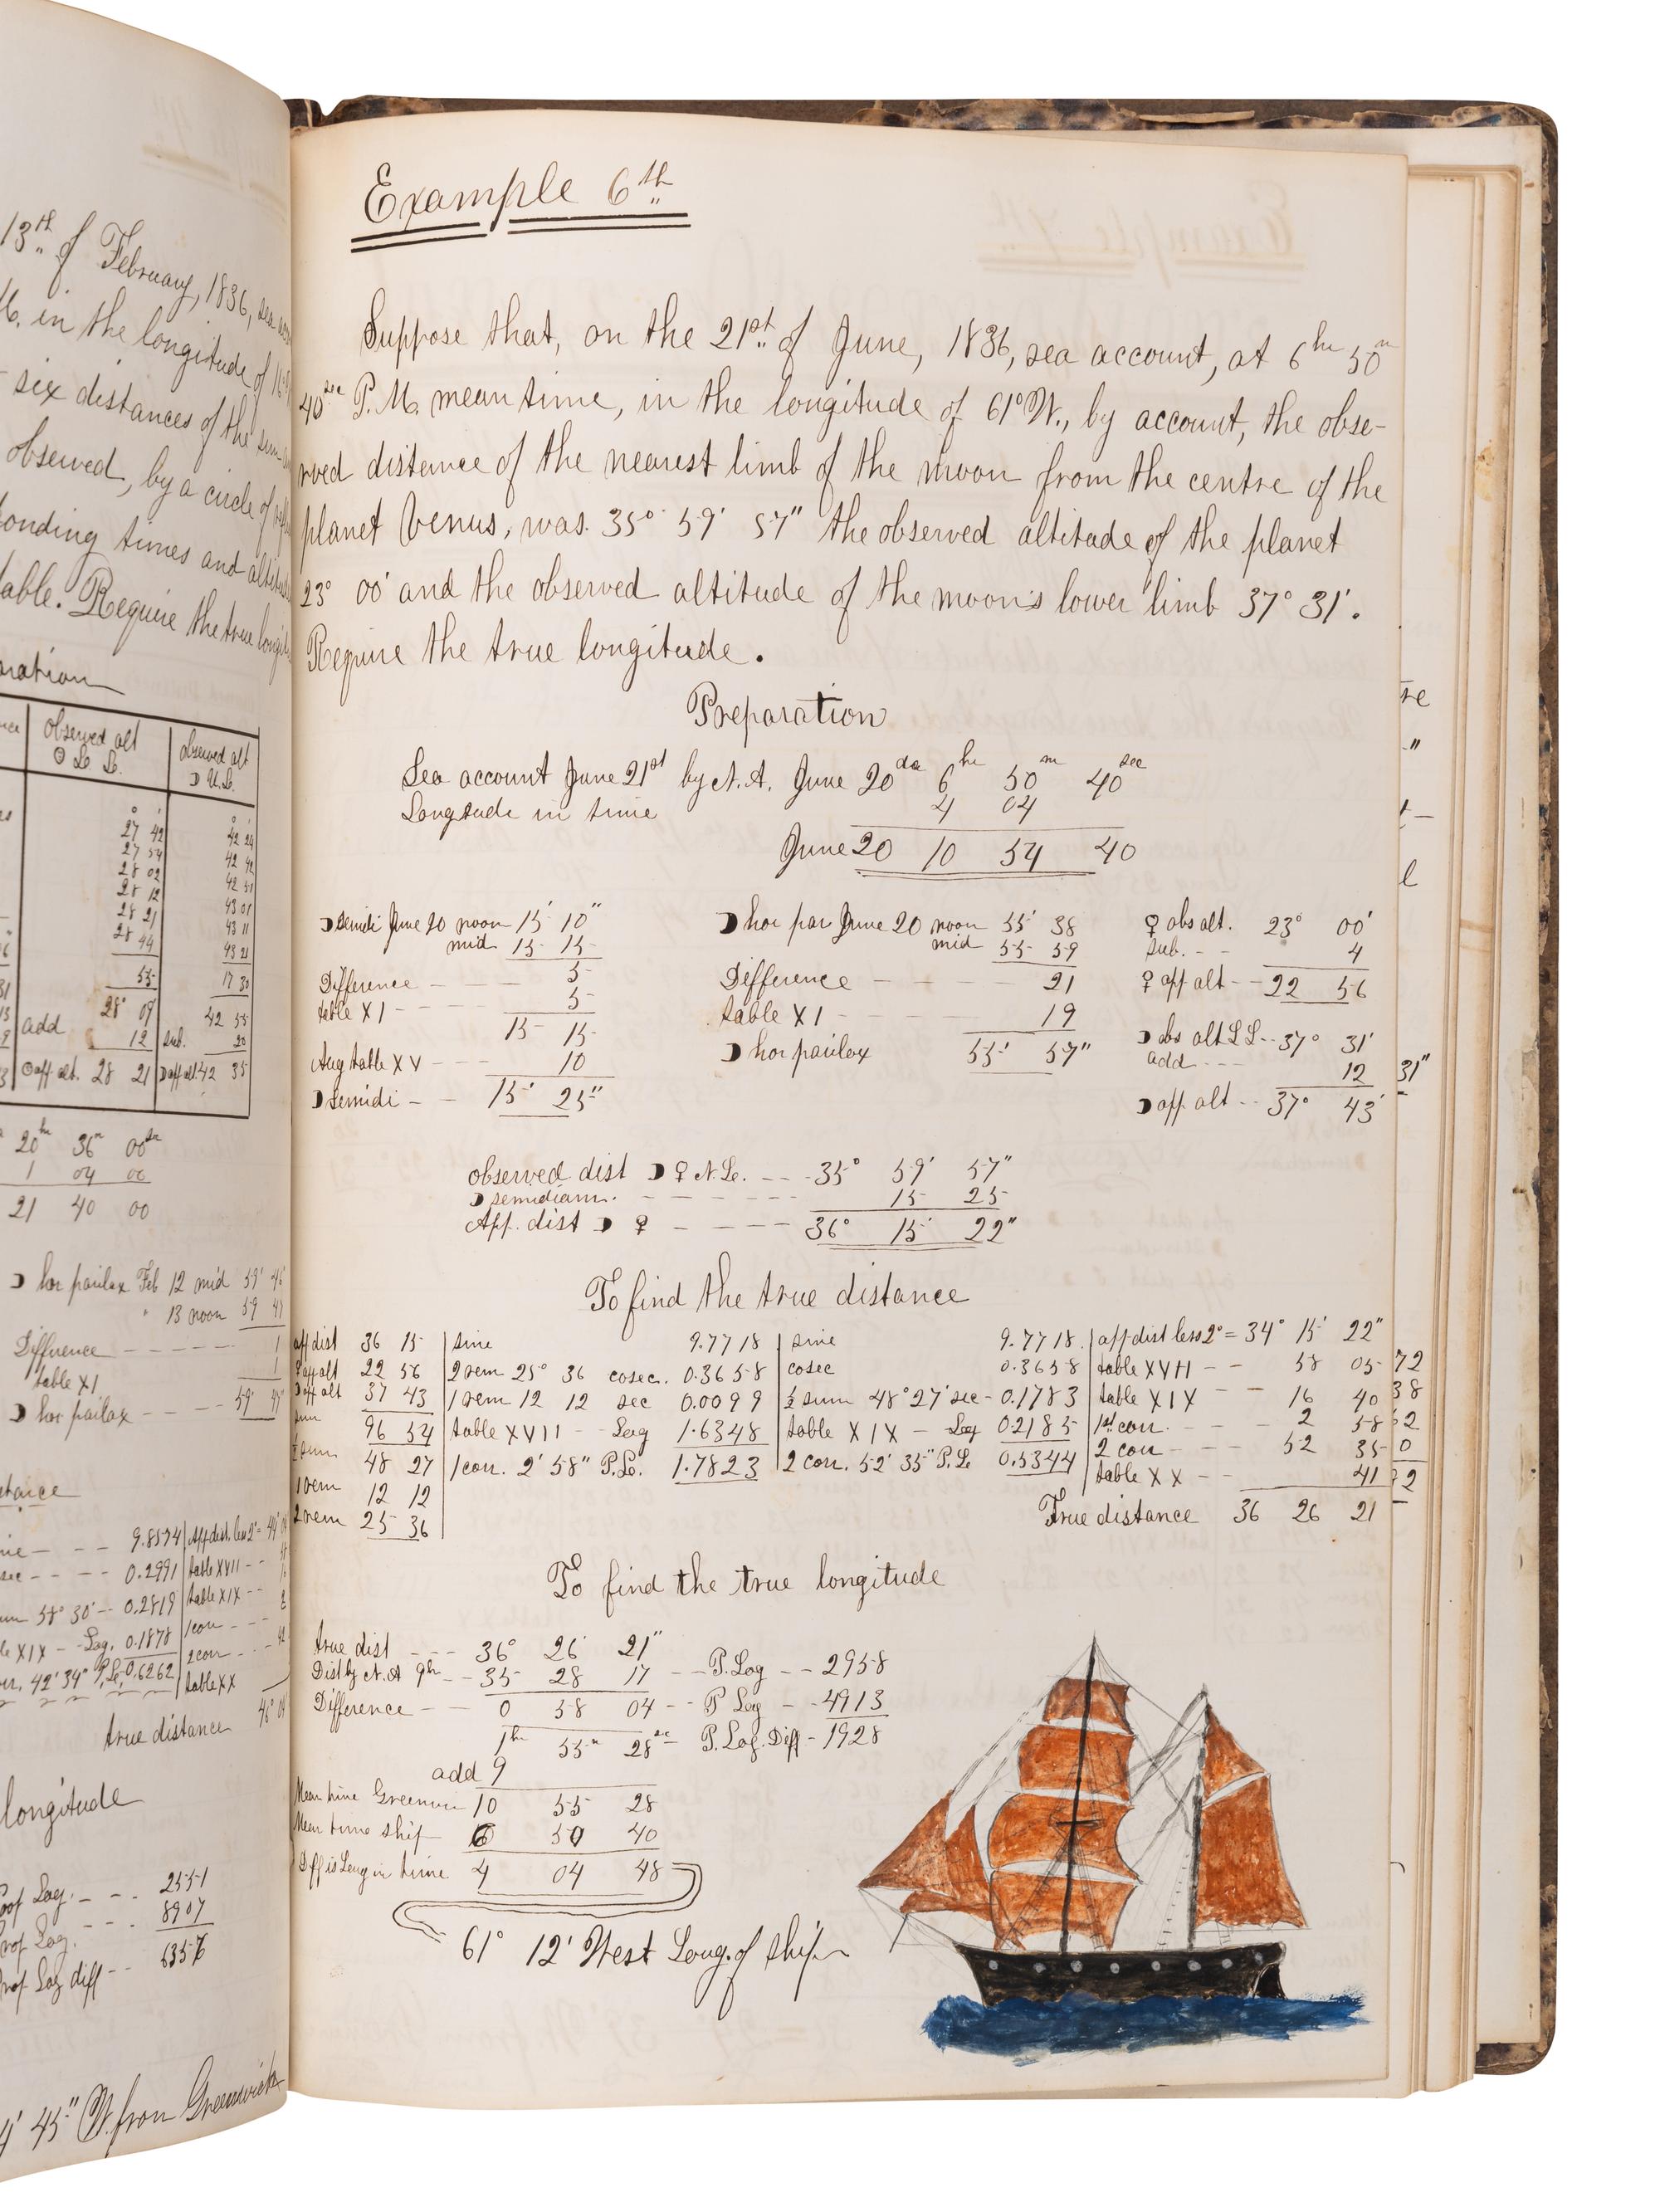 13th of February, 1836, sea
in the longitude of
six distances of the sun
observed, by a circle of
times and
table. Require the true
Observed alt
☉ L. L.
Observed alt
☽ U. L.
27 42
42 24
27 54
42 42
28 02
42 51
28 12
43 01
28 21
43 11
28 44
43 21
55
17 30
28° 09
42 55
add 12
sub. 20
☉ app alt. 28 21
☽ app alt 42 35
20hr 36m 00sec
1 04 00
21 40 00
☽ hor parlax Feb 12 mid 59' 46
" 13 noon 59 47
Difference - - - - - 1
table XI 1
☽ hor parlax - - - - 59' 47"
9.8574 App dist. less 2° =
0.2991 table XVII - -
58° 30' - - 0.2819 table XIX - -
XIX - - Log. 0.1878 1 corr - - -
42' 34" P. L. 0.6262 2 corr - - -
table XX
true distance
longitude
Log. - - - 2551
Log. - - - 8907
Log diff - - 6356
45" W. from Greenwich
Example 6th
Suppose that, on the 21st of June, 1836, sea account, at 6hr 50m
40sec P.M. mean time, in the longitude of 61° W., by account, the obse-
rved distance of the nearest limb of the moon from the centre of the
planet Venus, was. 35° 59' 57" the observed altitude of the planet
23° 00' and the observed altitude of the moon's lower limb 37° 31'.
Require the true longitude.
Preparation
Sea account June 21st by N. A. June 20da 6hr 50m 40sec
Longtude in time 4 04
June 20 10 54 40
☽ semidi June 20 noon 15' 10"
mid 15 15
Difference - - - - 5
table XI - - - - 5
15 15
Aug table XV - - - 10
☽ semidi - - 15' 25"
☽ hor par June 20 noon 55' 38
mid 55 59
Difference - - - - - 21
table XI - - - - - 19
☽ hor parlax 55' 57"
♀ obs alt. 23° 00'
sub. - - 4
♀ app alt - - 22 56
☽ obs alt L L - - 37° 31'
add - - - 12
☽ app alt - - 37° 43'
observed dist ☽ ♀ N. L. - - - 35° 59' 57"
☽ semidiam. - - - - - - 15 25
App. dist ☽ ♀ - - - - 36° 15' 22"
To find the true distance
app dist 36 15 | sine 9.7718 | sine 9.7718 | app dist less 2° = 34° 15' 22"
♀ app alt 22 56 | 2 rem 25° 36 cosec. 0.3658 | cosec 0.3658 | table XVII - - 58 05
☽ app alt 37 43 | 1 rem 12 12 sec 0.0099 | ½ sum 48° 27' sec - 0.1783 | table XIX - - 16 40
sum 96 54 | table XVII - - Log 1.6348 | table XIX - Log 0.2185 | 1st corr. - - - 2 58
½ sum 48 27 | 1 corr. 2' 58" P. L. 1.7823 | 2 corr. 52' 35" P. L 0.5344 | 2 corr - - - 52 35
1 rem 12 12 | table XX - - 41
2 rem 25 36
True distance 36 26 21
To find the true longitude
true dist - - - 36° 26' 21"
Dist by N. A 9hr - - 35 28 17 - - P. Log - - 2958
Difference - - 0 58 04 - - P Log - - 4913
1hr 55m 28sec - P. Log. Diff - 1928
add 9
Mean time Greenwi 10 55 28
Mean time ship 6 50 40
Diff is Long in time 4 04 48
61° 12' West Long. of ship
re
"
t-
l
31"
72
38
62
0
2